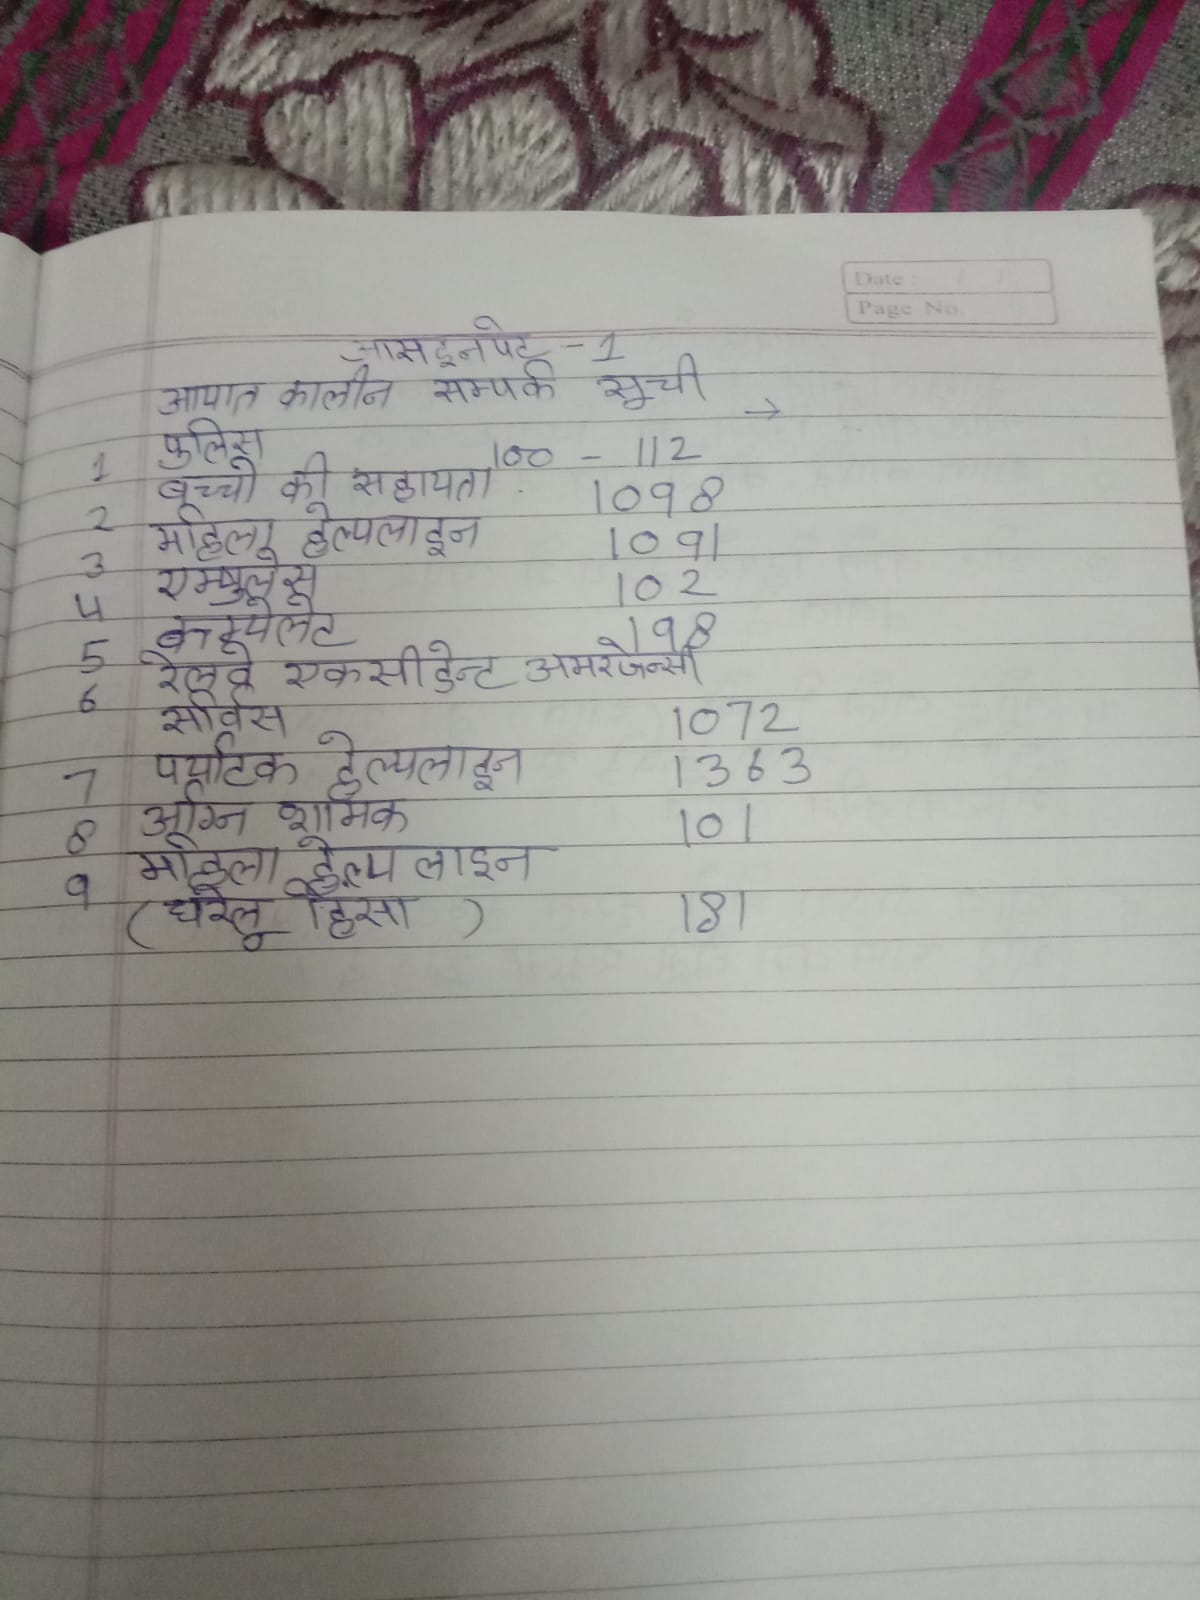 Date :
Page No.
आसइनपेट - 1
आपात कालीन सम्पर्क सूची →
1 पुलिस 100 - 112
2 बच्चो की सहायता 1098
3 महिला हेल्पलाइन 1091
4 एम्बुलेंस 102
5 कम्पलेट 198
6 रेलवे एकसीडेन्ट अमरजेन्सी
सर्विस 1072
7 पर्यटक हेल्पलाइन 1363
8 अग्नि शामक 101
9 महिला हेल्प लाइन
(घरेलू हिंसा) 181